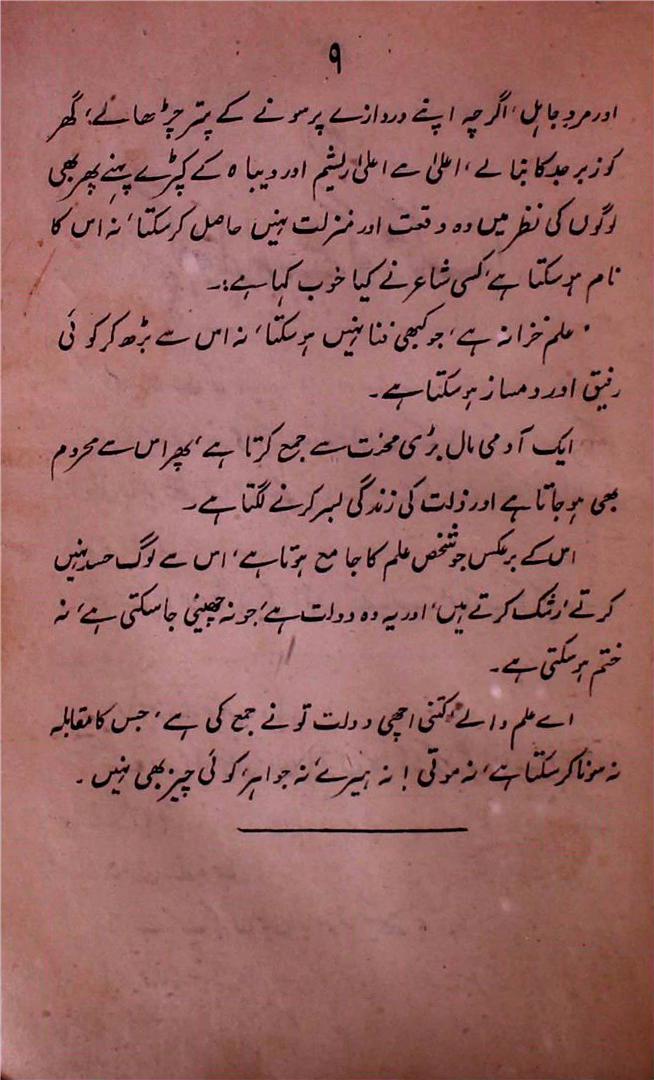 ۹
اور مردِ جاہل، اگرچہ اپنے دروازے پر سونے کے پتر چڑھالے، گھر
کو زبرجد کا بنا لے، اعلیٰ سے اعلیٰ ریشیم اور دیباہ کے کپڑے پہنے پھر بھی
لوگوں کی نظر میں وہ وقعت اور منزلت نہیں حاصل کرسکتا، نہ اس کا
نام ہوسکتا ہے، کسی شاعر نے کیا خوب کہا ہے:۔
علم خزانہ ہے، جو کبھی فنا نہیں ہوسکتا، نہ اس سے بڑھ کر کوئی
رفیق اور دمساز ہوسکتا ہے۔
ایک آدمی مال بڑی محنت سے جمع کرتا ہے، پھر اس سے محروم
بھی ہو جاتا ہے اور ذلت کی زندگی بسر کرنے لگتا ہے۔
اس کے برعکس جو شخص علم کا جامع ہوتا ہے، اس سے لوگ حسد نہیں
کرتے، رشک کرتے ہیں، اور یہ وہ دولت ہے، جو نہ چھینی جاسکتی ہے، نہ
ختم ہوسکتی ہے۔
اے علم والے، کتنی اچھی دولت تو نے جمع کی ہے، جس کا مقابلہ
نہ سونا کرسکتا ہے، نہ موتی! نہ ہیرے، نہ جواہر، کوئی چیز بھی نہیں۔